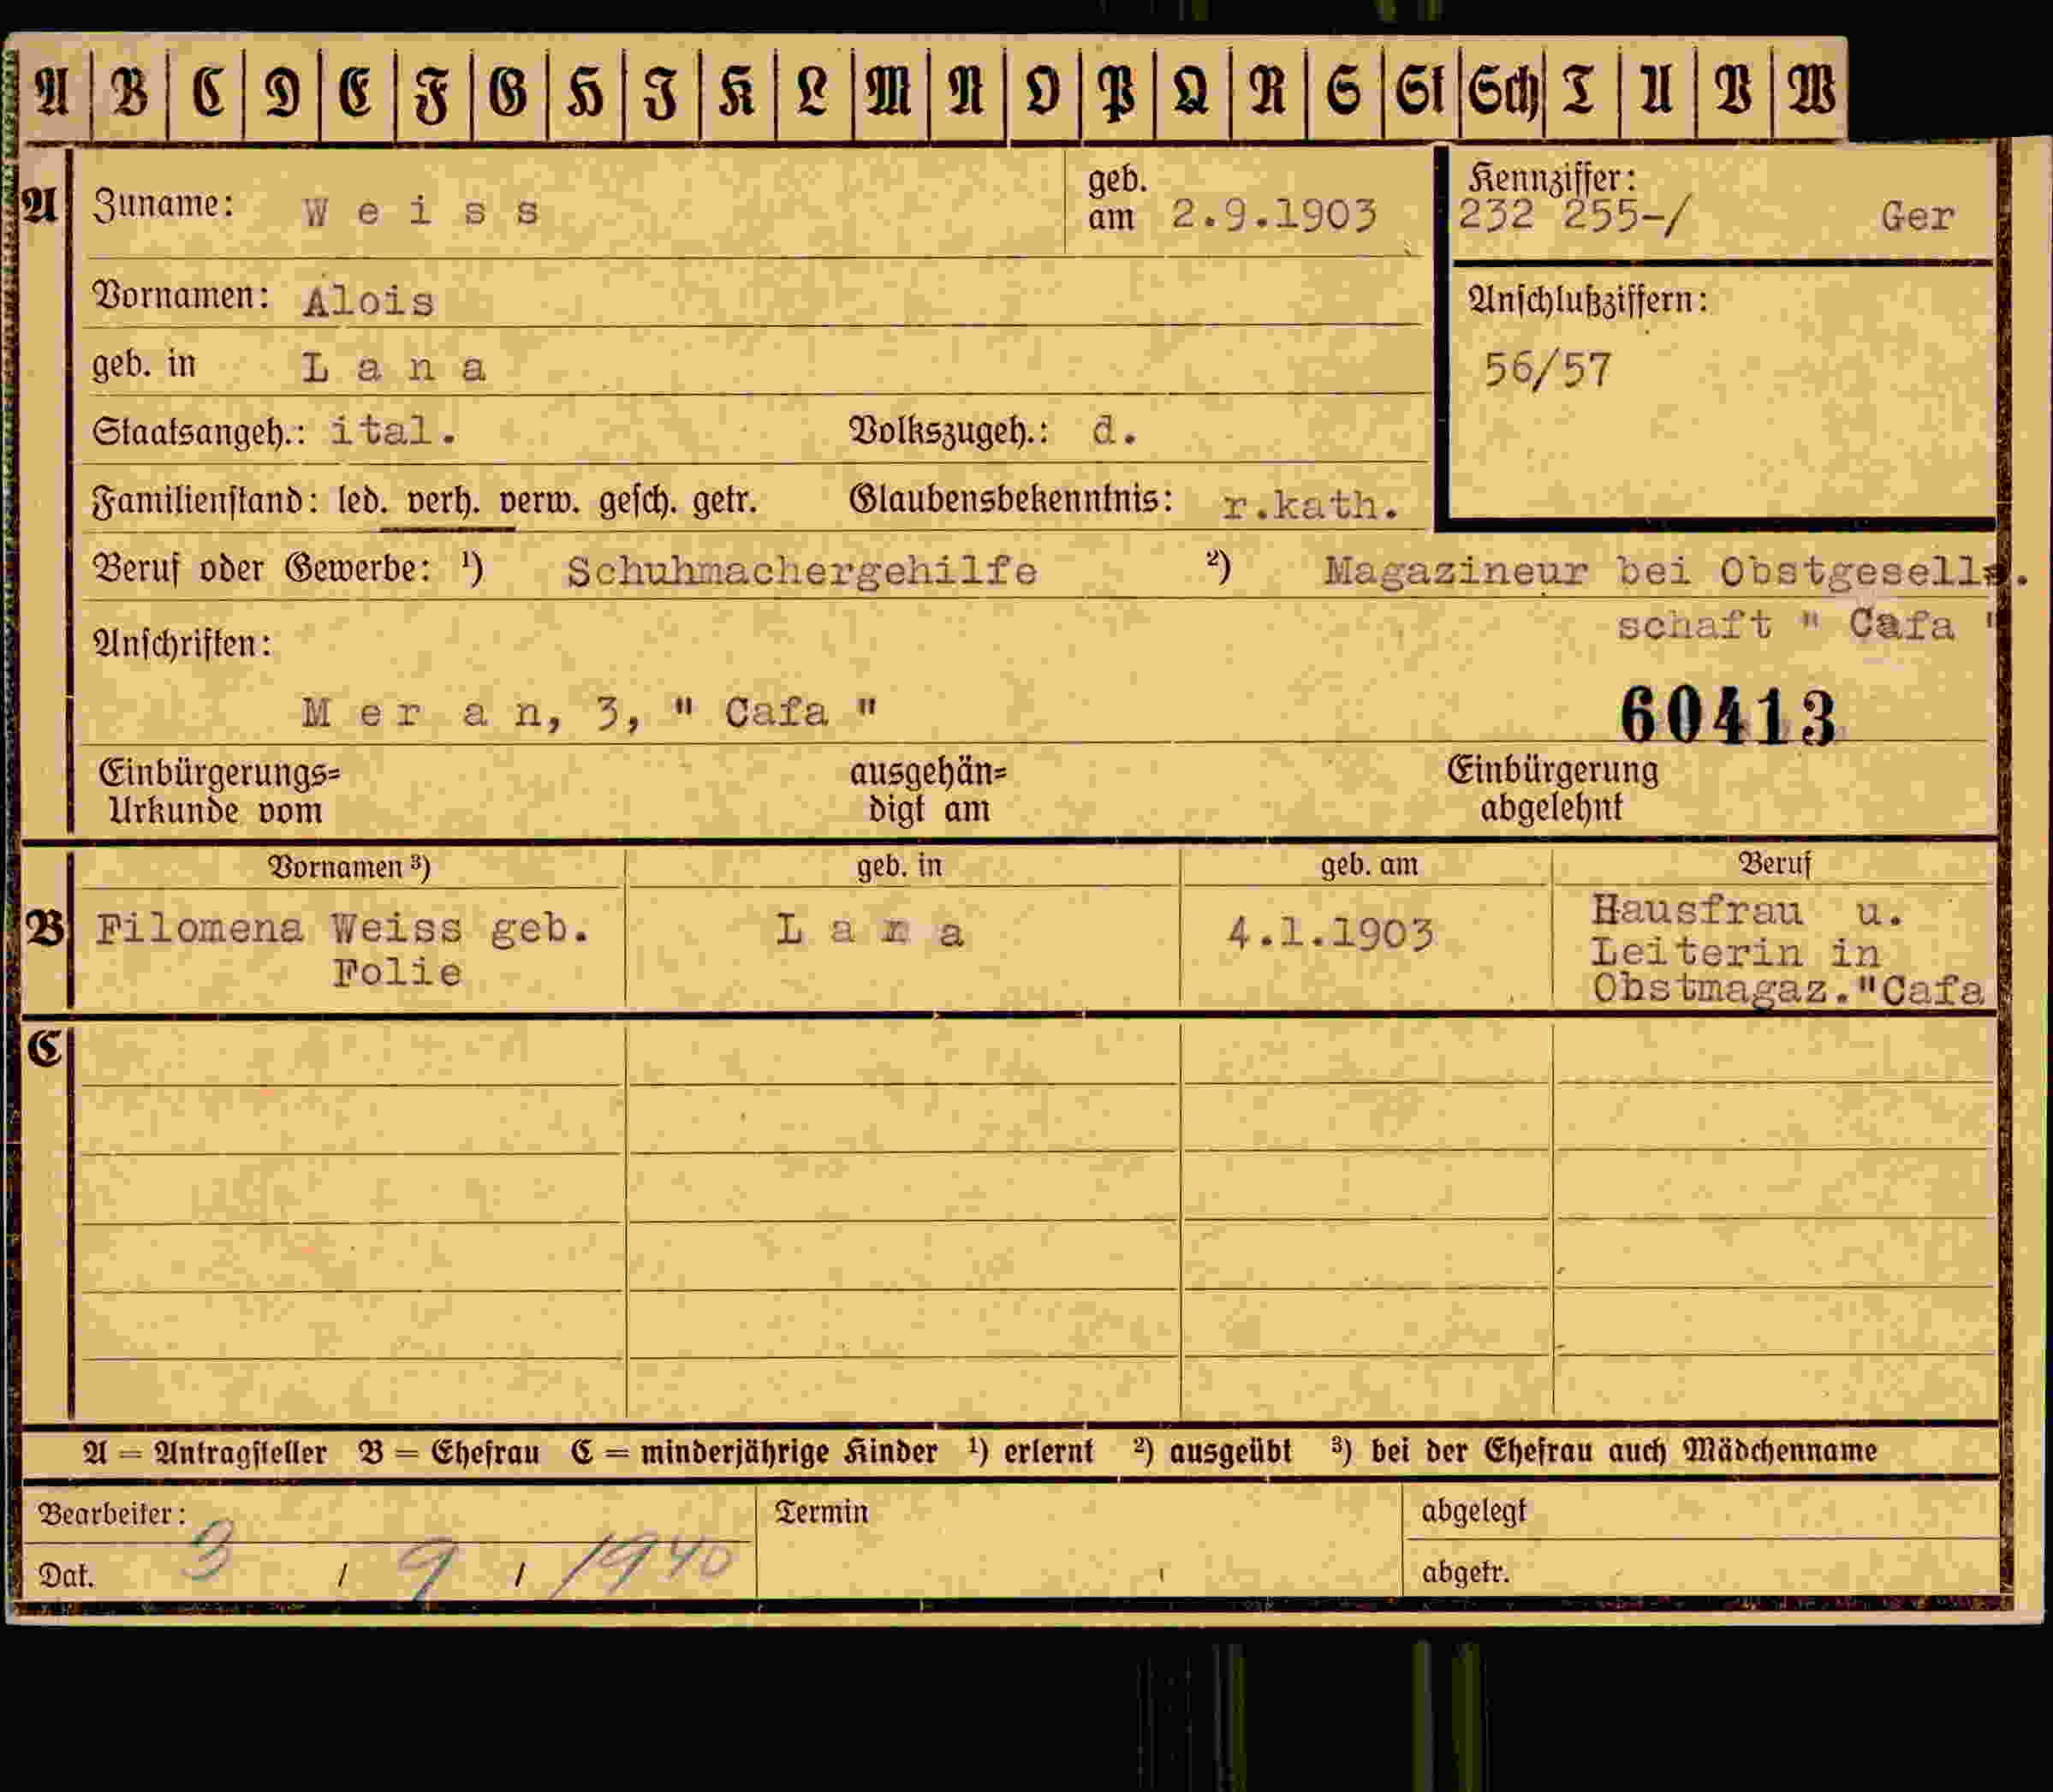 A B C D E F G H I K L M N O P Q R S St Sch T U V W
A Zuname: W e i s s geb. am 2.9.1903 Kennziffer:
232 255-/ Ger
Vornamen: Alois Anschlußziffern:
geb. in L a n a 56/57
Staatsangeh.: ital. Volkszugeh.: d.
Familienstand: led. verh. verw. gesch. getr. Glaubensbekenntnis: r.kath.
Beruf oder Gewerbe: ¹) Schuhmachergehilfe ²) Magazineur bei Obstgesells.
schaft " Cafa "
Anschriften:
M e r a n, 3, " Cafa " 60413
Einbürgerungs= ausgehän= Einbürgerung
Urkunde vom digt am abgelehnt
Vornamen ³) geb. in geb. am Beruf
B Filomena Weiss geb. L a n a 4.1.1903 Hausfrau u.
Folie Leiterin in
Obstmagaz."Cafa
C
A = Antragsteller B = Ehefrau C = minderjährige Kinder ¹) erlernt ²) ausgeübt ³) bei der Ehefrau auch Mädchenname
Bearbeiter: Termin abgelegt
Dat. 3 / 9 / 1940 abgetr.